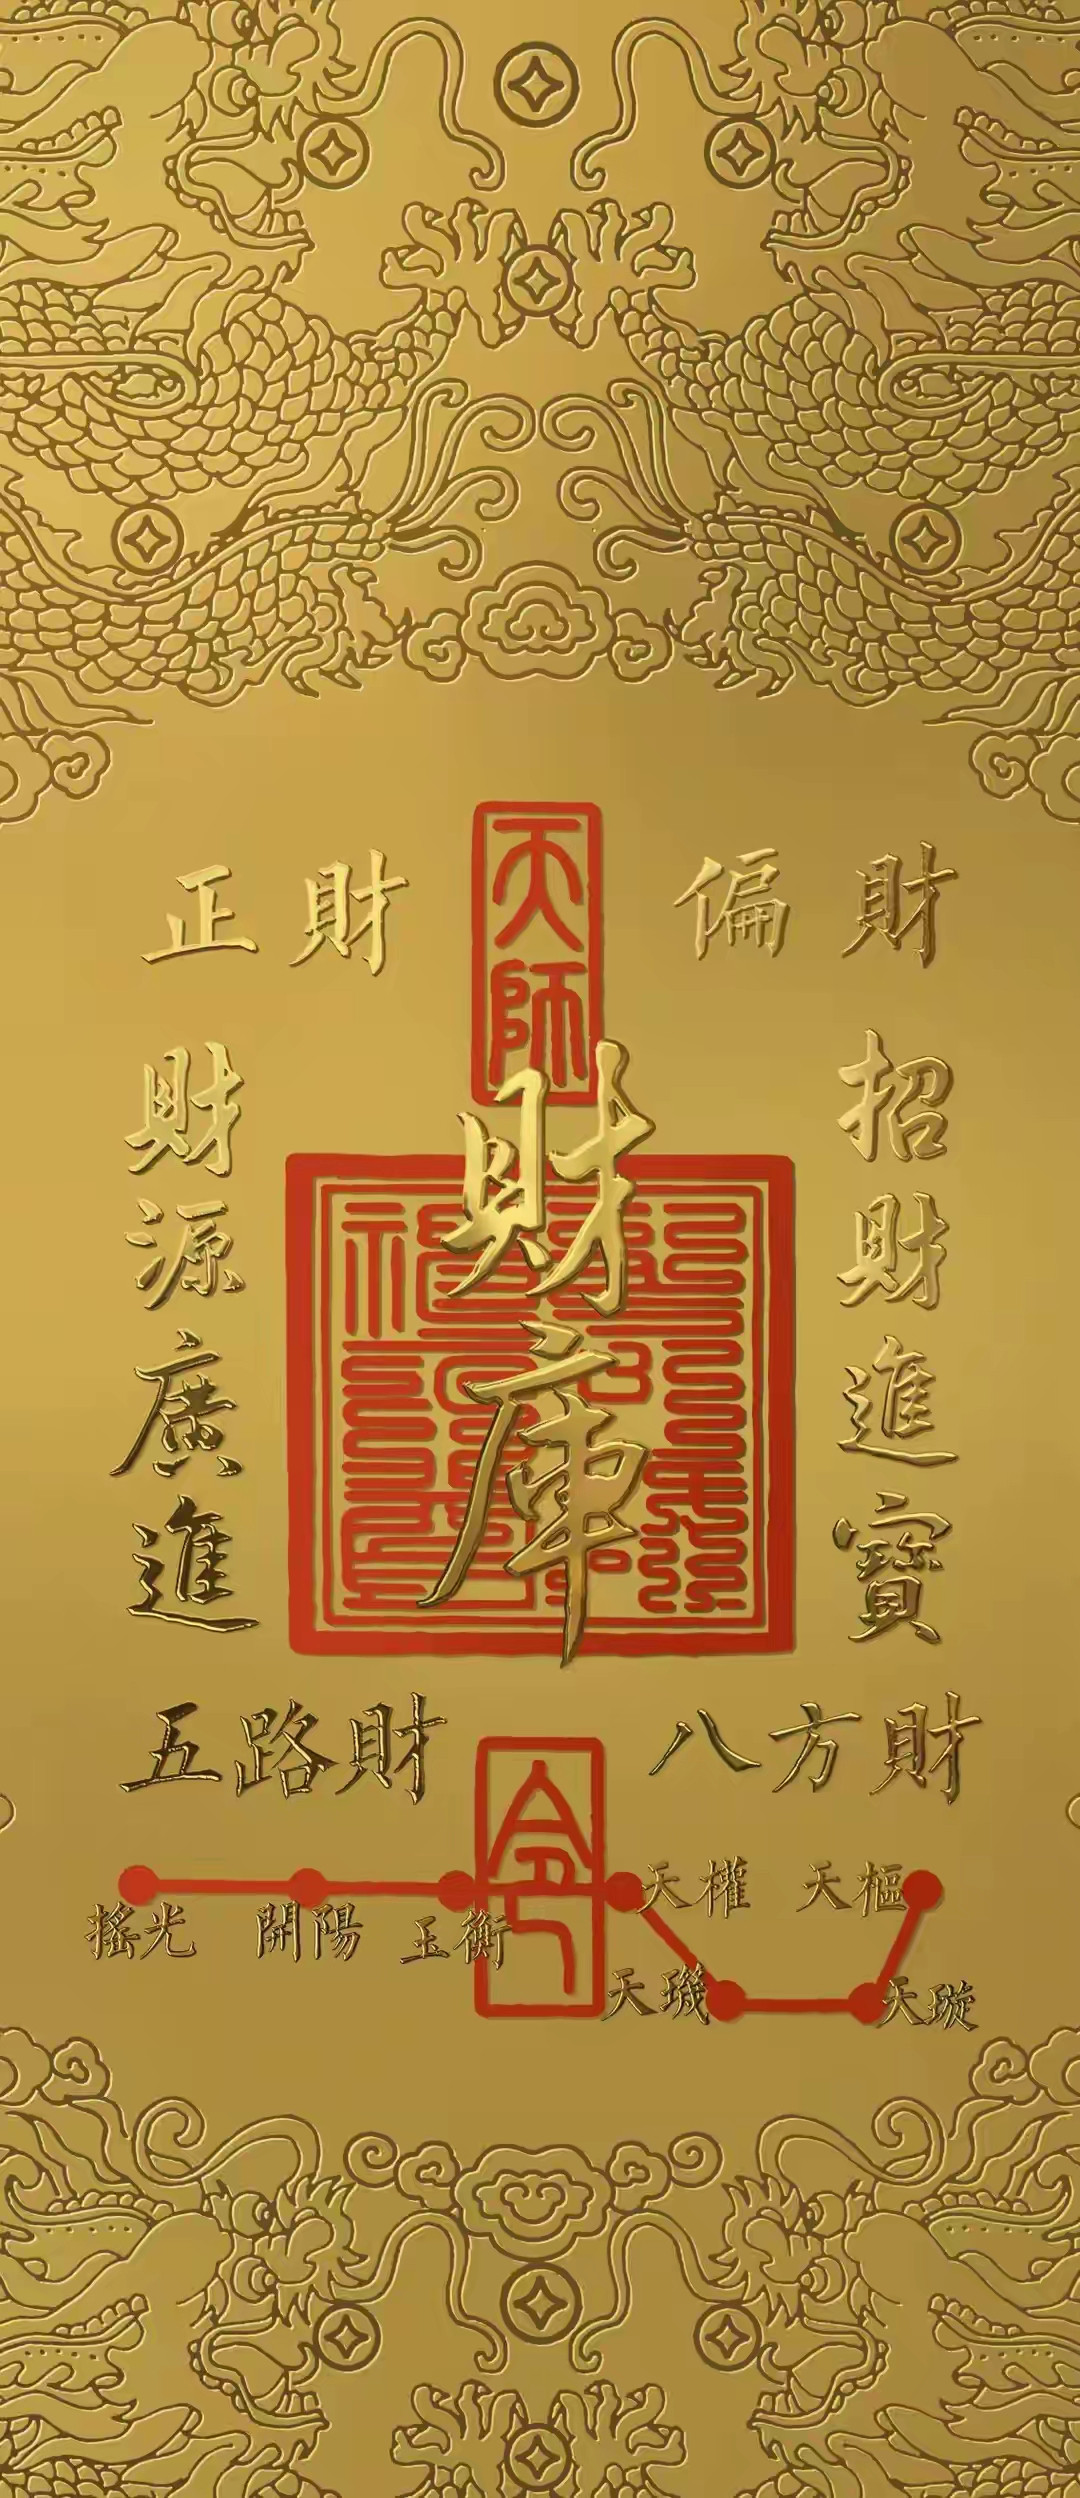 天師
正財
偏財
財庫
招財進寶
財源廣進
五路財
八方財
令
搖光
開陽
玉衡
天權
天樞
天璣
天璇